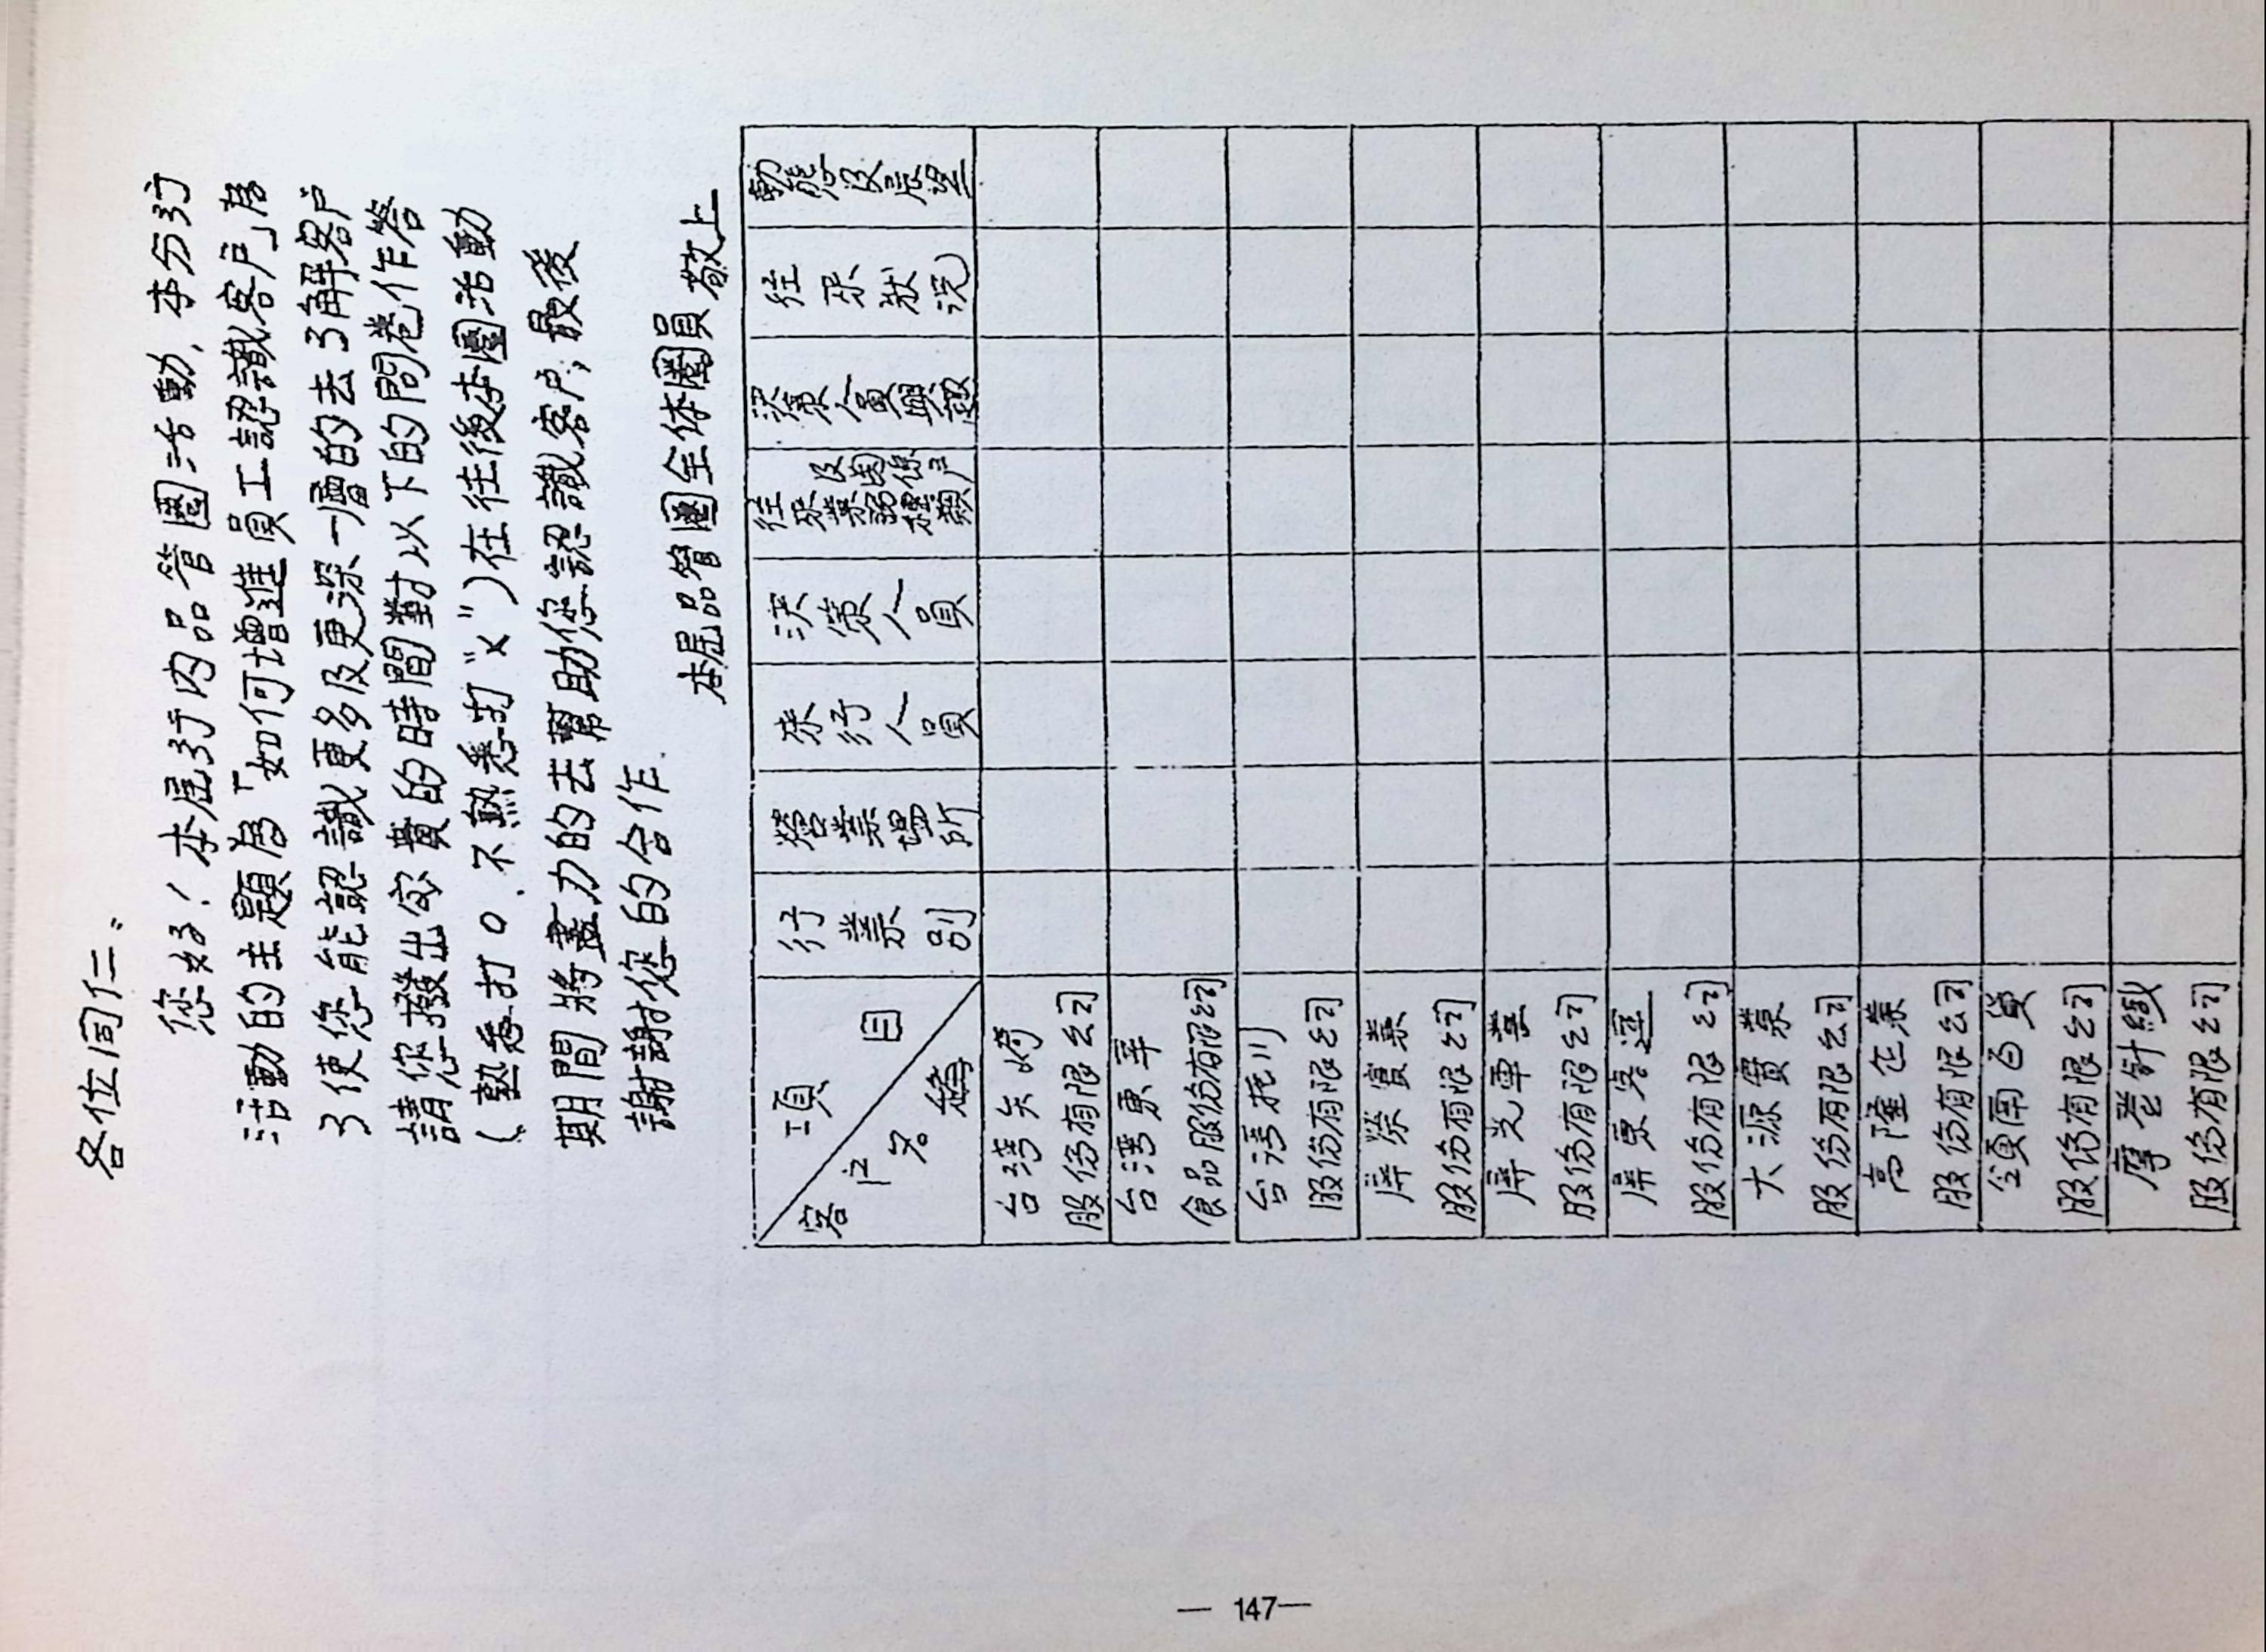 各位同仁:
您好!本屆3行內品管圈活動,本分行
活動的主題為「如何增進員工認識客戶」為
了使您能認識更多及更深一層的去了解客戶
請您撥出寶貴的時間對以下的問卷作答
(熟悉打O.不熟悉打"x")在往後本圈活動
期間將盡力的去幫助您認識客戶,最後
謝謝您的合作.
本屆品管圈全体圈員 敬上
項目
客戶名稱
行業別
營業場所
來行人員
決策人員
往來業務種類
及關係戶
決策人員興趣
往來狀況
動態及展望
台灣
股份有限公司
台灣
食品股份有限公司
台灣
股份有限公司
屏榮實業
股份有限公司
屏
股份有限公司
屏東
股份有限公司
大源實業
股份有限公司
高隆企業
股份有限公司
百貨
股份有限公司
針織
股份有限公司
— 147 —